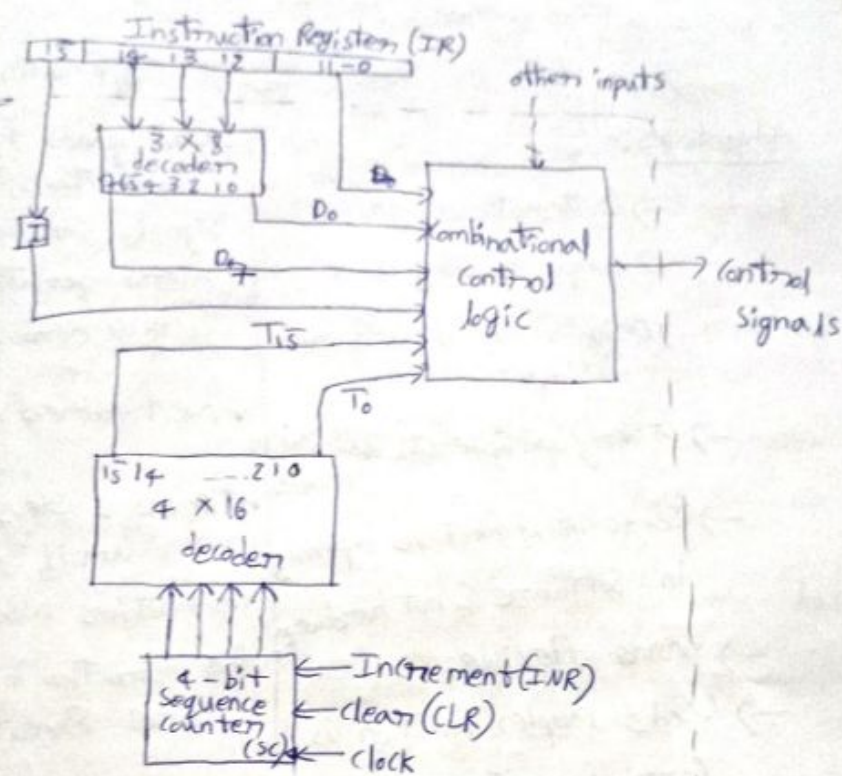 Instruction Register (IR)
15 14 13 12 11-0
other inputs
3 × 8
decoder
7 6 5 4 3 2 1 0
D0
I
D7
Combinational
control
logic
control
signals
T15
T0
15 14 .... 2 1 0
4 × 16
decoder
4-bit
sequence
counter
(SC)
Increment (INR)
clear (CLR)
clock